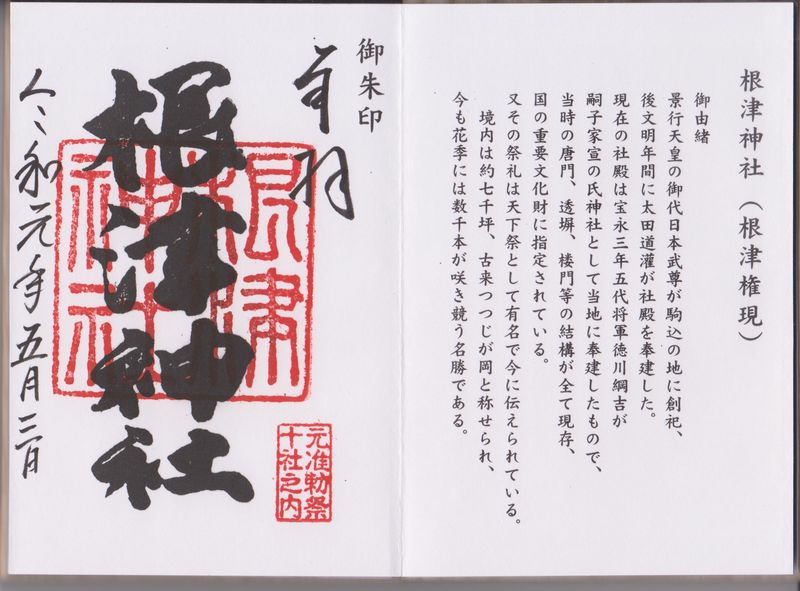 根津神社（根津権現）
御由緒
景行天皇の御代日本武尊が駒込の地に創祀、
後文明年間に太田道灌が社殿を奉建した。
現在の社殿は宝永三年五代将軍徳川綱吉が
嗣子家宣の氏神社として当地に奉建したもので、
当時の唐門、透塀、楼門等の結構が全て現存、
国の重要文化財に指定されている。
又その祭礼は天下祭として有名で今に伝えられている。
境内は約七千坪、古来つつじが岡と称せられ、
今も花季には数千本が咲き競う名勝である。
御朱印
奉拝
根津神社
根津神社
元准勅祭
十社之内
令和元年五月三日